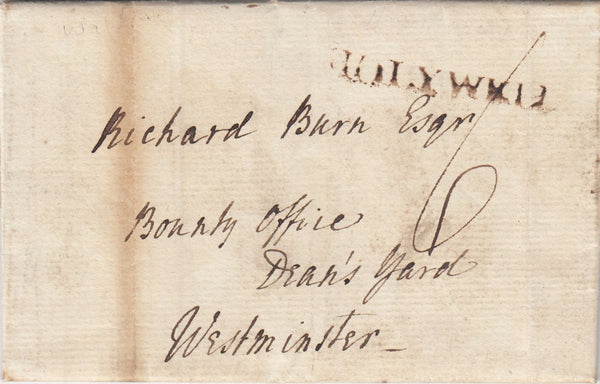 Richard Burn Esqr
6
Bounty Office
Dean's Yard
Westminster